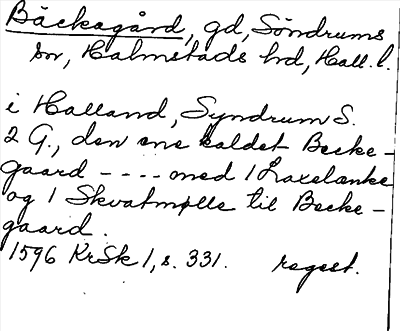 Bäckagård, gd, Söndrums
sn, Halmstads hd, Hall. l.
i Halland, Syndrum S.
2 G., den ene kaldet Becke-
gaard ---- med 1 Laxelanke
og 1 Skvatmølle til Becke-
gaard.
1596 KrSk 1, s. 331. regest.